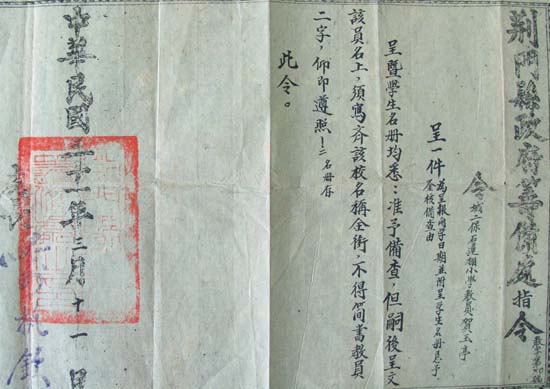 荆門縣政府籌備處指令
教字第 號
令城二保石蓮鄉小學教員賀玉亭
呈一件為呈報開學日期並附呈學生名册息予
查核備查由
呈暨學生名册均悉：准予備查，但嗣後呈文
該員名上，須寫齊該校名稱全銜，不得簡書教員
二字，仰即遵照！二名册存
此令。
中華民國三十一年三月十一日